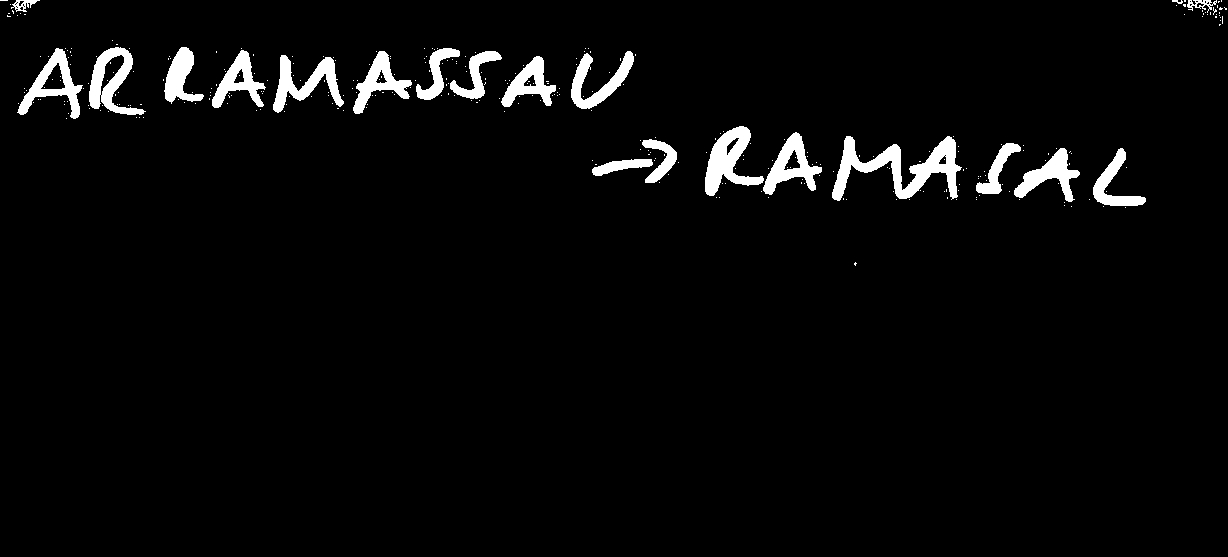 ARRAMASSAU
→ RAMASAL